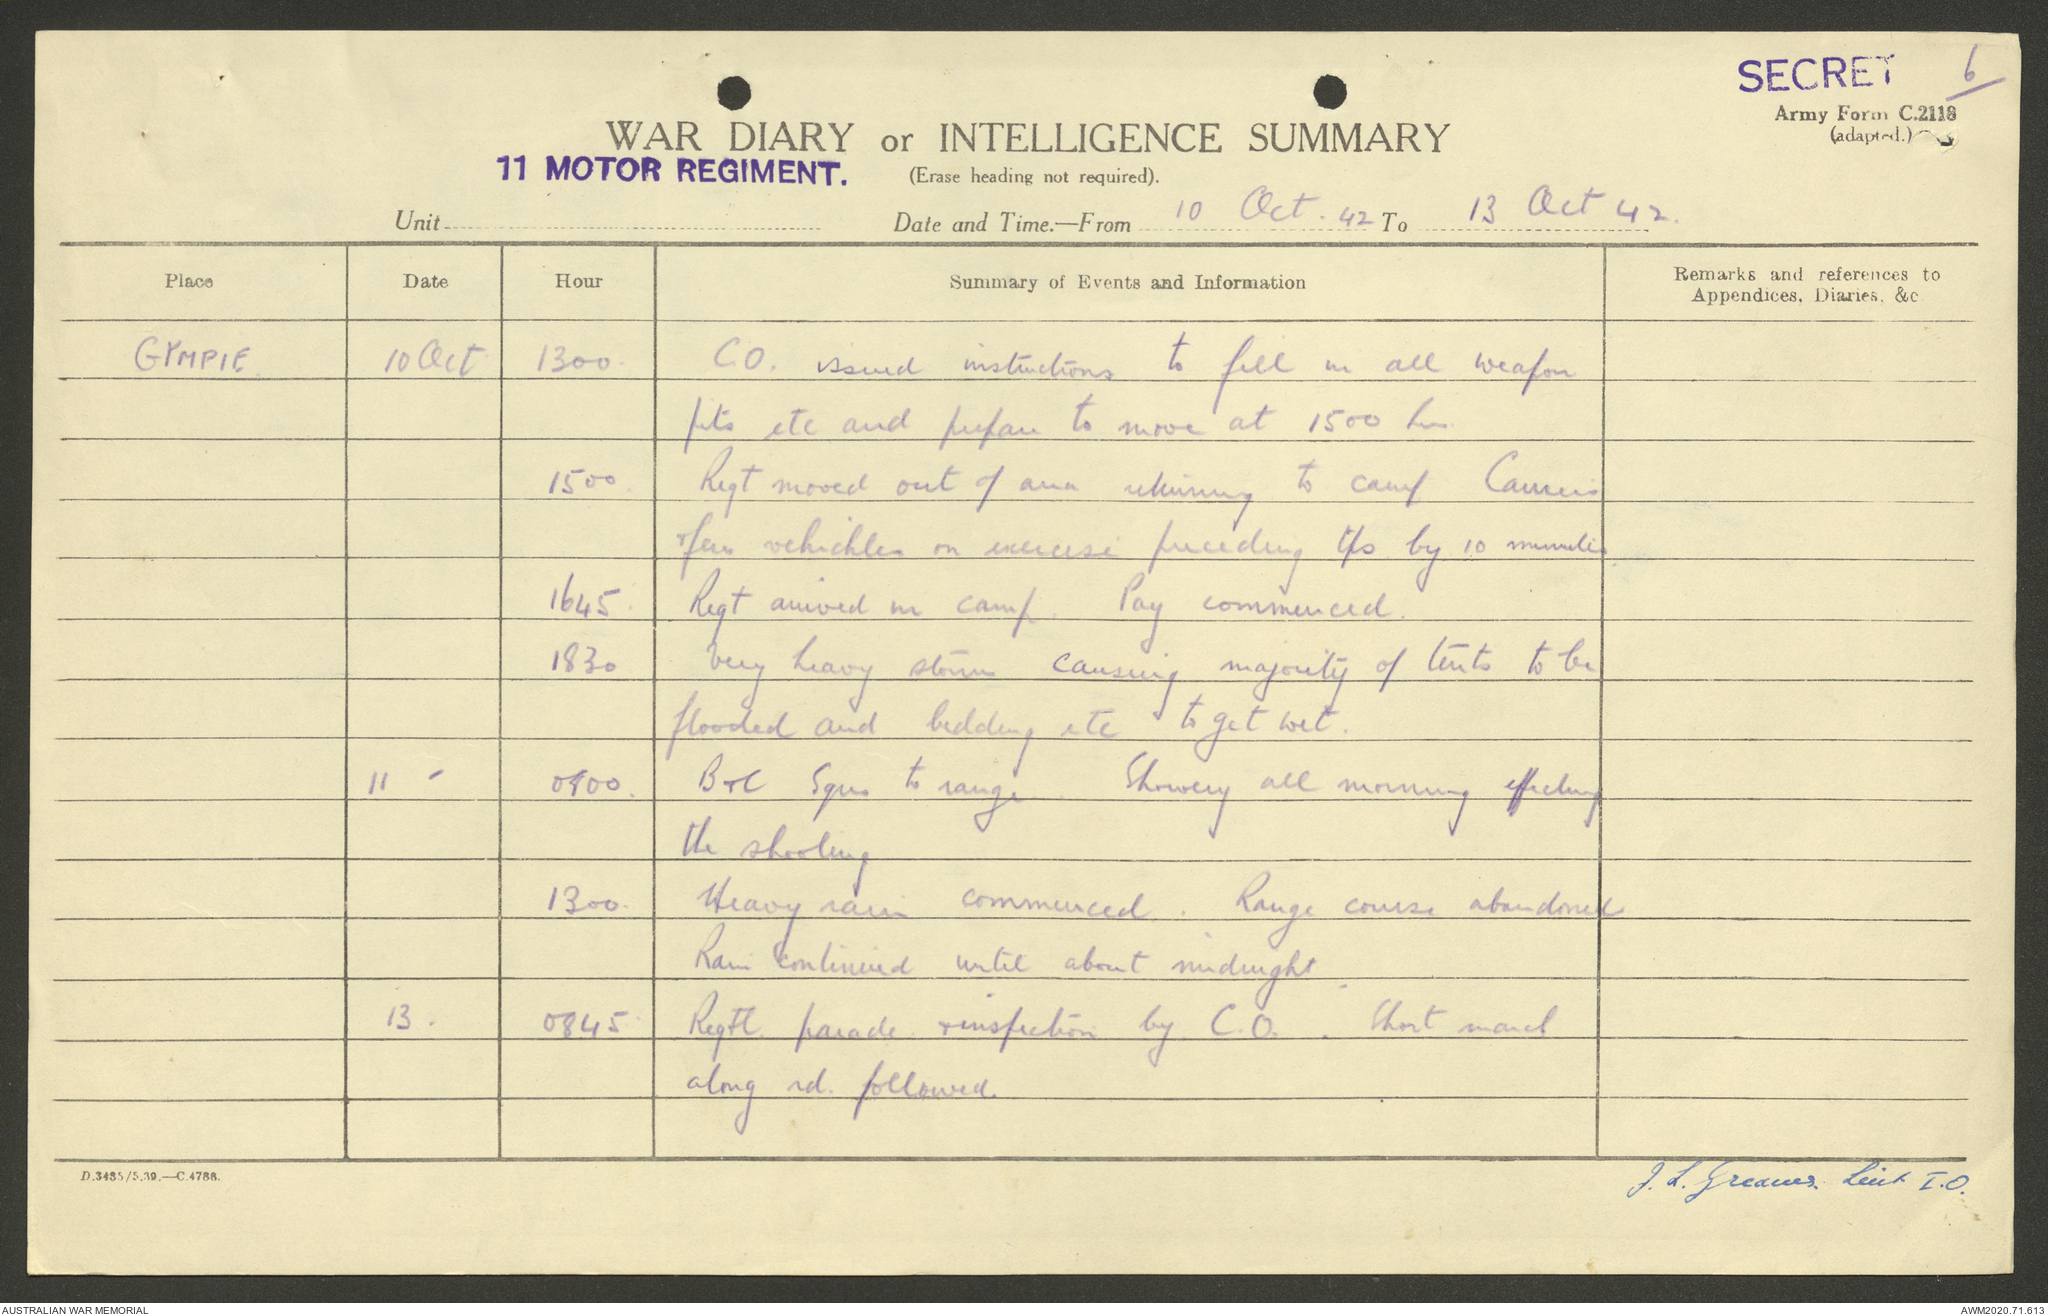 SECRET 6
Army Form C.2118
(adapted.)
WAR DIARY or INTELLIGENCE SUMMARY
11 MOTOR REGIMENT.
(Erase heading not required).
Unit Date and Time.—From 10 Oct. 42 To 13 Oct 42.
Place Date Hour Summary of Events and Information Remarks and references to
Appendices, Diaries, &c
GYMPIE 10 Oct 1300. C.O. issued instructions to fill in all weapon
pits etc and prepare to move at 1500 hrs.
1500. Regt moved out of area returning to camp Carriers
+ few vehichles on exercise preceding tps by 10 minutes
1645. Regt arrived in camp. Pay commenced.
1830 Very heavy storm causing majority of tents to be
flooded and bedding etc to get wet.
11 " 0900. B+C Sqns to range. Showery all morning effecting
the shooting
1300. Heavy rain commenced. Range course abandoned
Rain continued until about midnight
13. 0845 Regtl parade + inspection by C.O. Short march
along rd. followed.
D.3485/5.39.—C.4788.
J. L. Greaves. Lieut I.O.
AUSTRALIAN WAR MEMORIAL AWM2020.71.613